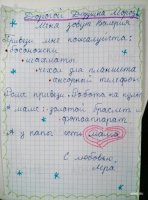 Дорогой Дедушка Мороз!
Меня зовут Валерия
Привези мне пожалуйста:
босоножки
шахматы
чехол для планшета
сенсорный телефон
Роме привези - Робота на пульте
А маме: золотой браслет
фотоаппарат
А у папы есть мама
С любовью,
Лера